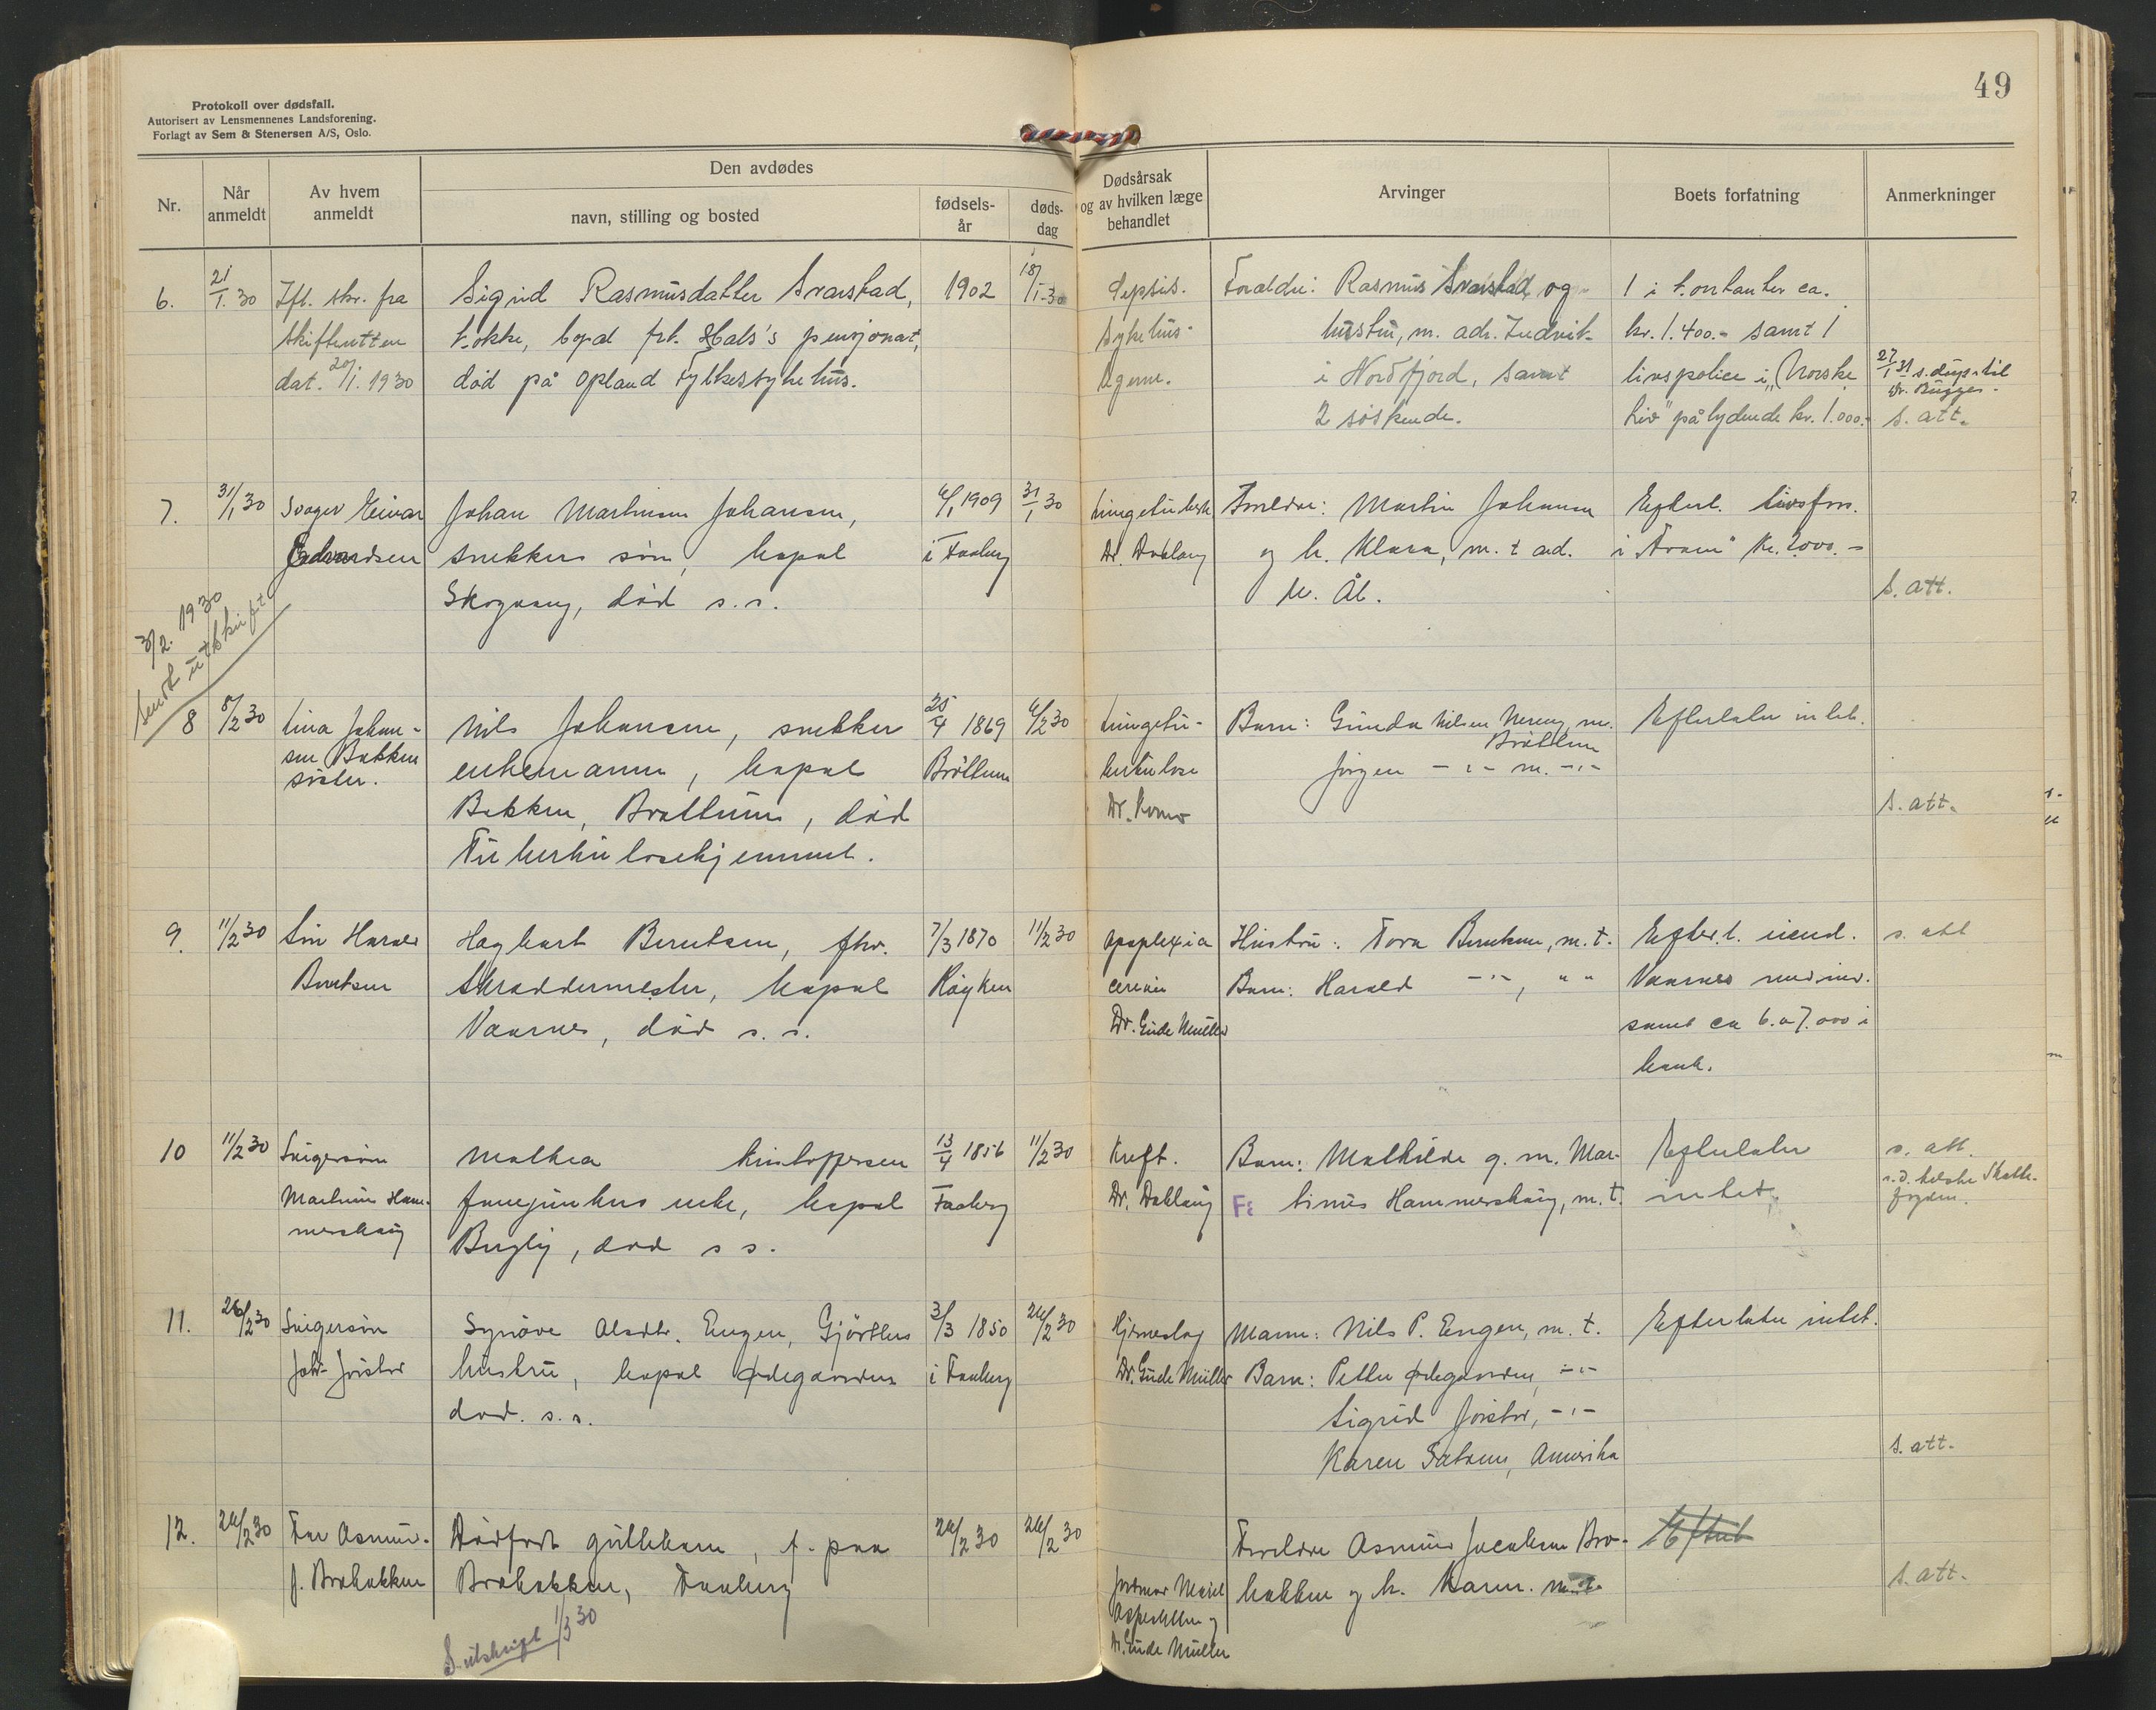 49
Protokoll over dødsfall.
Autorisert av Lensmennenes Landsforening.
Forlagt av Sem & Stenersen A/S, Oslo.
Nr.
Når anmeldt
Av hvem anmeldt
Den avdødes
navn, stilling og bosted
fødsels-år
døds-dag
Dødsårsak og av hvilken læge behandlet
Arvinger
Boets forfatning
Anmerkninger
6.
21/1. 30
Ifl. skr. fra
skifteretten
dat. 20/1. 1930
Sigrid Rasmusdatter Svarstad,
kokke, bopæl frk. Hals's pensjonat,
død på Opland Fylkessykehus.
1902
18/1-30
Sepsis.
Sykehus-
lægerne.
Foreldre: Rasmus Svarstad og
hustru, m. adr.
i Nordfjord, samt
2 søskende.
1 i kontanter ca.
kr. 1.400.- samt 1
livspolice i "Norske
Liv" pålydende kr. 1.000.-
27/1 31 s. dups. til
Dr. Bugges.
s. att.
7.
31/1 30
Svoger Einar
Edvardsen
Johan Martinsen Johansen,
snekkers søn, bopæl
Skogvang, død s.s.
6/1 1909
i Faaberg
31/1 30
Lungetuberk
Dr. Dahlaug
Foreldre: Martin Johansen
og h. Klara, m. t. ad.
M. Ål.
Efterl. livsfors.
i "Fram" Kr. 2.000.-
s. att.
3/2. 1930
Sendt utskrift
8
8/2 30
Lina Johan-
sen Bakken
søster.
Nils Johansen, snekker
enkemann, bopæl
Bakken, Brøttum, død
Tuberkulosehjemmet.
25/4 1869
Brøttum
6/2 30
Lungetu-
berkulose
Dr. Romo
Barn: Gunda Nilsen Nereng, m.
Brøttum
Jørgen -"- m. -"-
Efterlater intet.
s. att.
9.
11/2 30
Søn Harald
Berntsen
Hagbart Berntsen, fhv.
skreddermester, bopæl
Vaarnes, død s.s.
7/3 1870
Røyken
11/2 30
apoplexia
cerebri
Dr. Gude Müller
Hustru: Tora Berntsen, m. t.
Barn: Harald -"-, " "
Efterl. eiend.
Vaarnes med inv.
samt ca 6. a 7.000 i
bank.
s. att
10
11/2 30
Svigersøn
Martinus Ham-
mershaug
Mathea Kristoffersen
enke, bopæl
Bergly, død s s.
13/4 1856
Faaberg
11/2 30
Kreft.
Dr. Dahlaug
Barn: Mathilde g. m. Mar-
tinus Hammershaug, m. t.
Efterlater
intet.
s. att.
s. d.
fogden.
11.
26/2 30
Svigersøn
Joh. Jørstad
Synøve Olsdtr. Engen, Gjørtlers
hustru, bopæl Ødegaarden
død. s.s.
3/3 1850
i Faaberg
24/2 30
Hjerneslag
Dr. Gude Müller
Mann: Nils P. Engen, m. t.
Barn: Petter Ødegaarden, -"-
Sigrid Jørstad, -"-
Karen Sætrum, Amerika
Efterlater intet.
s. att.
12.
26/2 30
Far Asmund
J. Brobakken
Dødfødt guttebarn, f. paa
Brobakken, Faaberg
26/2 30
26/2 30
Jordmor
og
Dr. Gude Müller
Foreldre Asmund Jacobsen Bro-
bakken og h. Karen. m.t.
Efterl
s. att.
S. utskrift 1/3 30